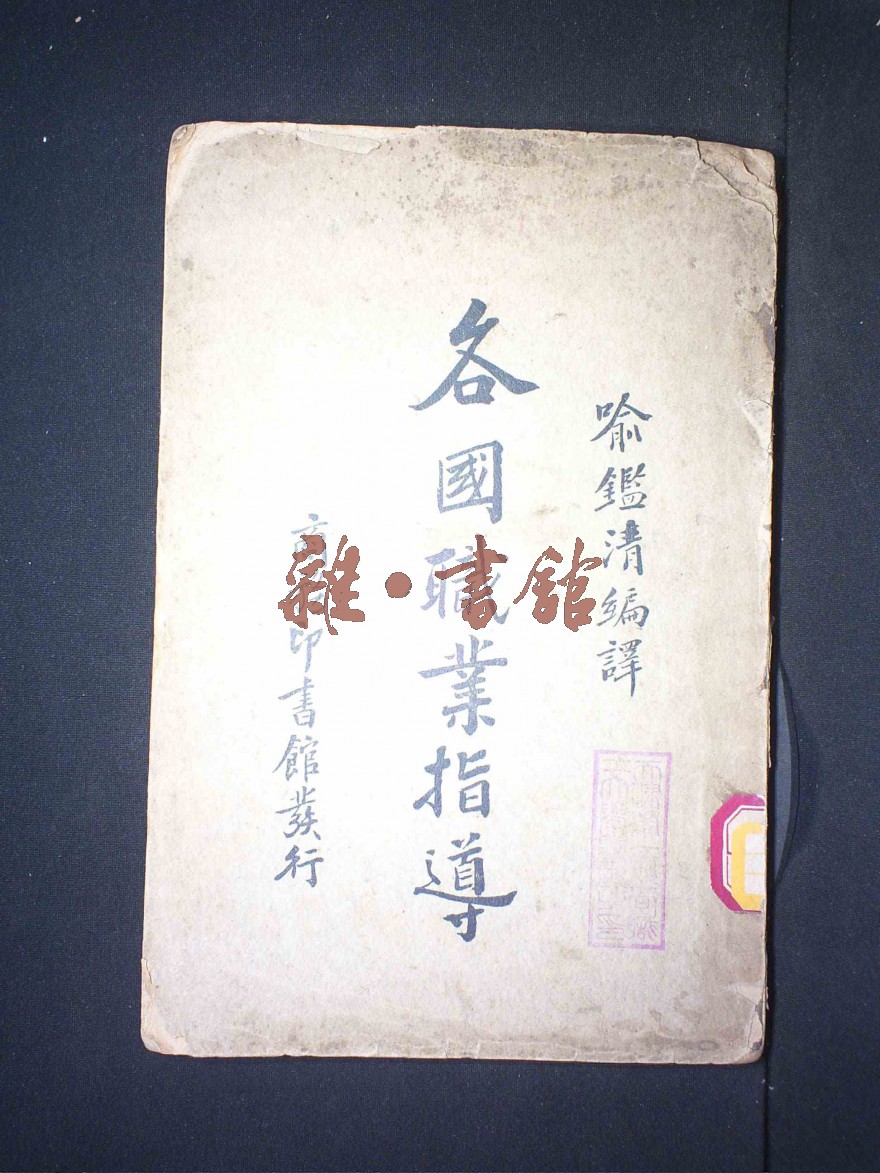 喻鑑清編譯
各國職業指導
商務印書館發行
雜·書館